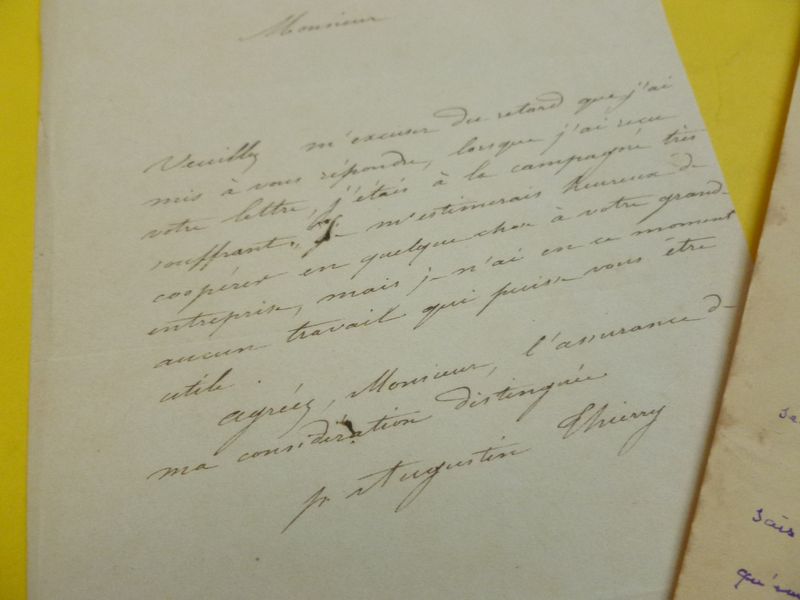 Monsieur
Veuillez m'excuser du retard que j'ai
mis à vous répondre, lorsque j'ai reçu
votre lettre, j'étais à la campagne très
souffrant, je m'estimerais heureux de
coopérer en quelque chose à votre grand
entreprise, mais je n'ai en ce moment
aucun travail qui puisse vous être
utile.
agréez, Monsieur, l'assurance de
ma considération distinguée
pr Augustin Thierry
sais